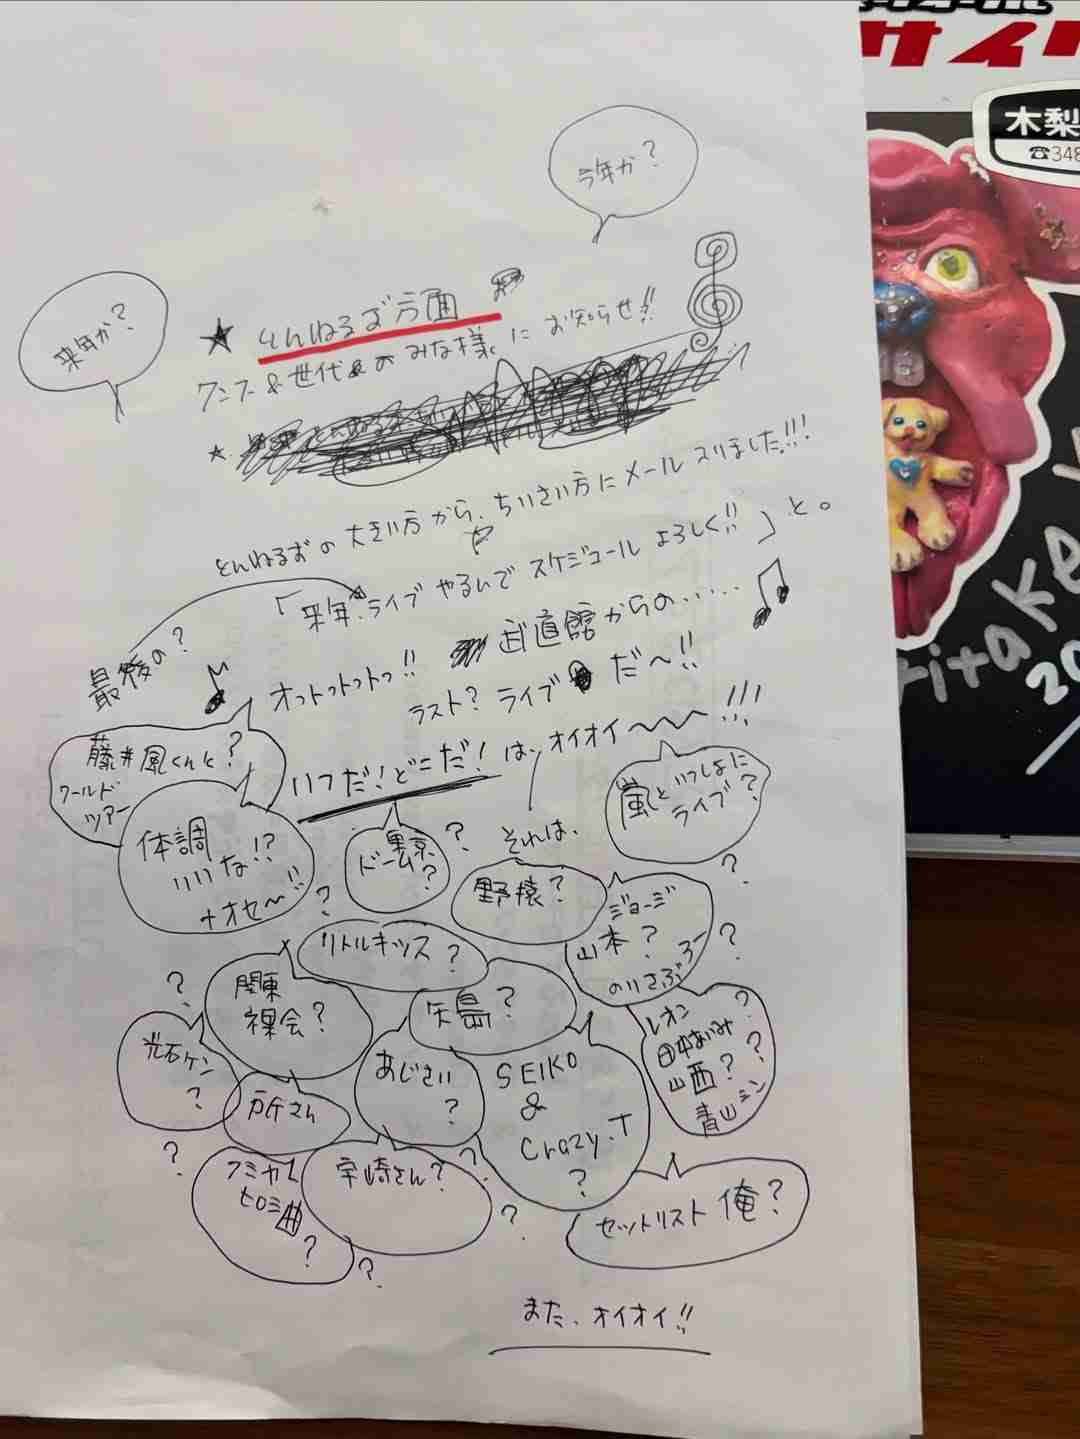 今年か?
来年か?
★とんねるず方面
ファン&世代&のみな様にお知らせ!!
とんねるずの大きい方から、ちいさい方にメール入りました!!!
「来年、ライブやるんで スケジュール よろしく!!」と。
最後の?
オットットットっ!! 武道館からの......
ラスト? ライブ だ〜!!
いつだ!どこだ!は、オイオイ〜〜〜!!!
藤井風くんと?
ワールド
ツアー
嵐といっしょに
ライブ?
体調
いいな!?
ナオセ〜!!
東京
ドーム?
?
それは、
野猿?
ジョージ
山本?
のりさぶろー
?
?
?
リトルキッズ?
関東
裸会?
矢島?
?
レオン
山西?
青山シン
?
?
光石ケン
?
あじさい
?
SEIKO
&
Crazy.T
?
所さん
?
フミヤ
ヒロミ
?
宇崎さん?
?
?
?
セットリスト 俺?
また、オイオイ!!
サイ
木梨
☎348